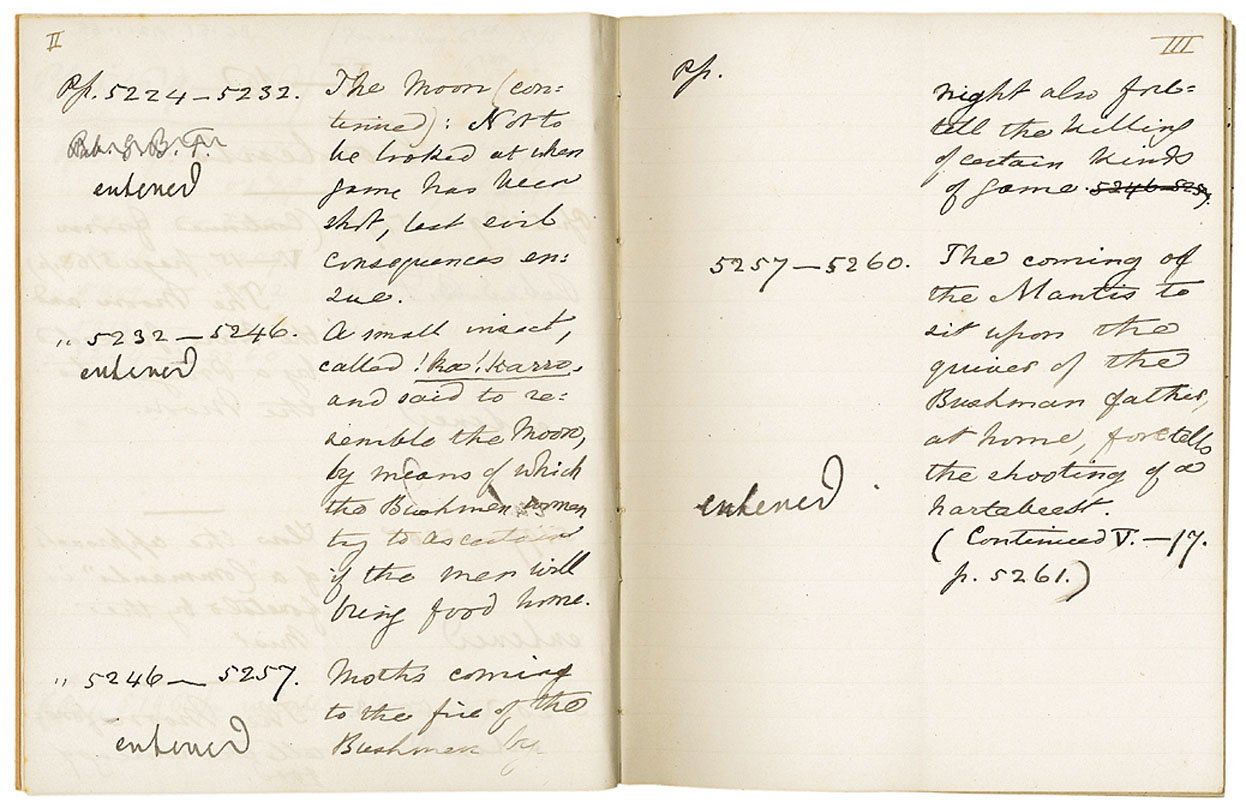 II
Pp. 5224 — 5232. The Moon (con=
tinued): Not to
be looked at when
entered
game has been
shot, lest evil
consequences en=
sue.
" 5232 — 5246. A small insect,
entered
called !ko!karro,
and said to re=
semble the Moon,
by means of which
the Bushmen women
try to ascertain
if the men will
bring food home.
" 5246 — 5257. Moths coming
to the fire of the
entered
Bushmen by
III
Pp.
night also fore=
tell the killing
of certain kinds
of game. 5246–5257.
5257 — 5260. The coming of
the Mantis to
sit upon the
quiver of the
Bushman father,
at home, foretells
the shooting of a
entered
hartebeest.
(Continued V. — 17.
p. 5261.)